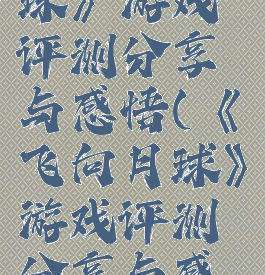 球》游戏
评测分享
与感悟(《
飞向月球》
游戏评测
分享与感